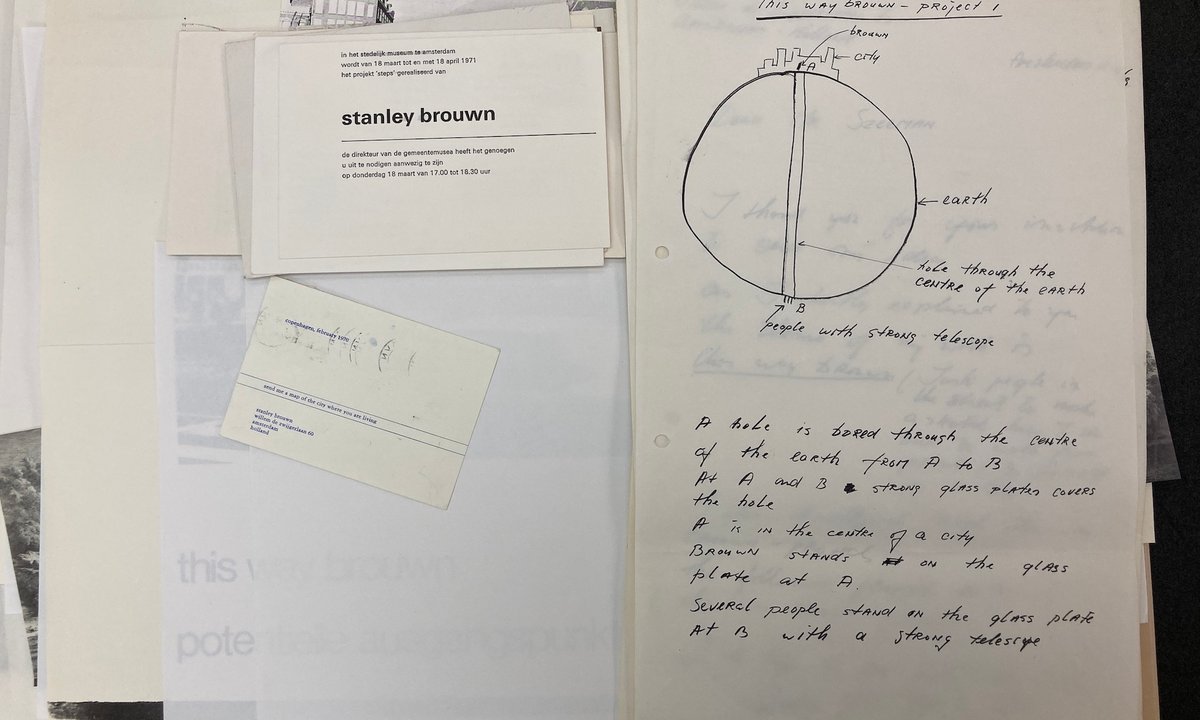 in het stedelijk museum te amsterdam
wordt van 18 maart tot en met 18 april 1971
het projekt 'steps' gerealiseerd van
stanley brouwn
de direkteur van de gemeentemusea heeft het genoegen
u uit te nodigen aanwezig te zijn
op donderdag 18 maart van 17.00 tot 18.30 uur
copenhagen, february 1970
send me a map of the city where you are living
stanley brouwn
willem de zwijgerlaan 60
amsterdam
holland
this
THIS WAY BROUWN - PROJECT 1
BROUWN
city
A
earth
hole through the
CENTRE OF the EARTH
B
people with STRONG telescope
A hole is BORED through the CENTRE
of the EARTH FROM A to B
At A and B STRONG GLASS PLATES COVERS
the hole
A is in the CENTRE of a city
BROUWN STANDS on the glass
plate at A.
Several people STAND ON the GLASS PLATE
At B with a STRONG telescope